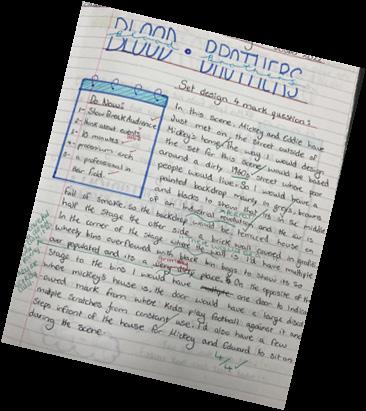 BLOOD • BROTHERS
Set design 4 mark question:
Do Now:
1- Show Break Audience
2- think about events
3- 10 minutes
4- proscenium arch
5- a professional in their field.
In this scene, Mickey and Eddie have
Just met on the street outside of
Mickey's home, the way I would design
the set for this scene would be based
around a dirty 1960s street where poor
people would live. So I would have a
painted backdrop mainly in greys, browns
and blacks to show that its in the middle
of an industrial revolution and the air is
full of smoke, so the backdrop would be terraced houses
half the stage the other side a brick wall covered in grafitti
In the corner of the stage where the wall is I'd have multiple
wheely bins overflowed with black bin bags to show its so
over populated and its a very dirty place. On the opposite of the
stage to the bins I would have one door to indicate
where mickey's house is, the door would have a large
coloured mark from where kids play football against it and
multiple scratches from constant use. I'd also have a few
steps infront of the house for Mickey and Edward to sit on
during the scene.
4/4